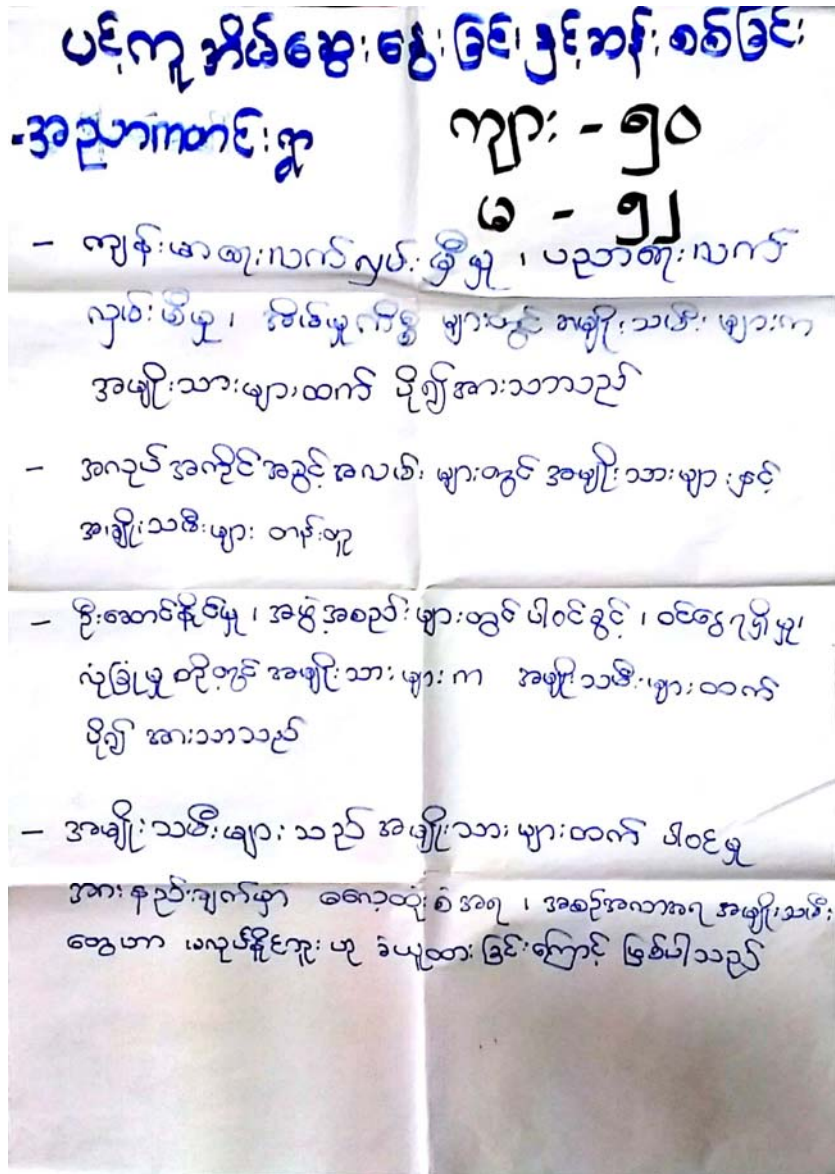 ပင့်ကူအိမ်ဆွေးနွေးခြင်းနှင့်ဆန်းစစ်ခြင်း
-အညာကတင်းရွာ
ကျား - ၅၀
မ - ၅၂
- ကျန်းမာရေးလက်လှမ်းမှီမှု ၊ ပညာရေးလက်
လှမ်းမီမှု ၊ အိမ်မှုကိစ္စ များတွင် အမျိုးသမီး များက
အမျိုးသားများထက် ပို၍အားသာသည်
- အလုပ်အကိုင်အခွင့်အလမ်း များတွင် အမျိုးသားများနှင့်
အမျိုးသမီးများ တန်းတူ
- ဦးဆောင်နိုင်မှု ၊ အဖွဲ့အစည်းများတွင် ပါဝင်ခွင့် ၊ ဝင်ငွေရရှိမှု၊
လုံခြုံမှု တို့တွင် အမျိုးသားများက အမျိုးသမီးများထက်
ပို၍ အားသာသည်
- အမျိုးသမီးများသည် အမျိုးသားများထက် ပါဝင်မှု
အားနည်းချက်မှာ ဓလေ့ထုံးစံအရ ၊ အစဉ်အလာအရ အမျိုးသမီး
တွေဟာ မလုပ်နိုင်ဘူး ဟု ခံယူထားခြင်းကြောင့် ဖြစ်ပါသည်